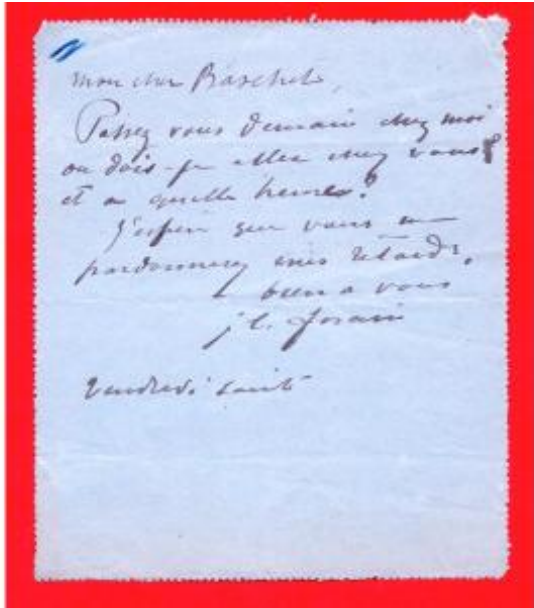 mon cher Baschet,
Passez vous demain chez moi
ou dois-je aller chez vous?
et a quelle heure?
J'espère que vous me
pardonnerez mes retards.
bien a vous
j l. forain
Vendredi saint